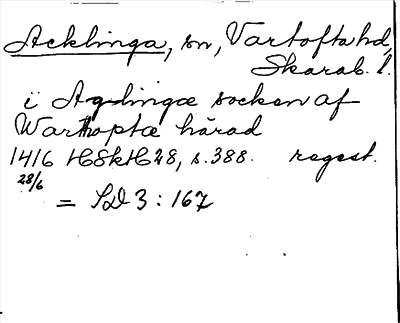 Acklinga, sn, Vartofta hd,
Skarab. l.
i Aglingæ socken af
Warthoptæ härad
1416 HSkH 28, s. 388. regest.
28/6
= SD 3 : 167